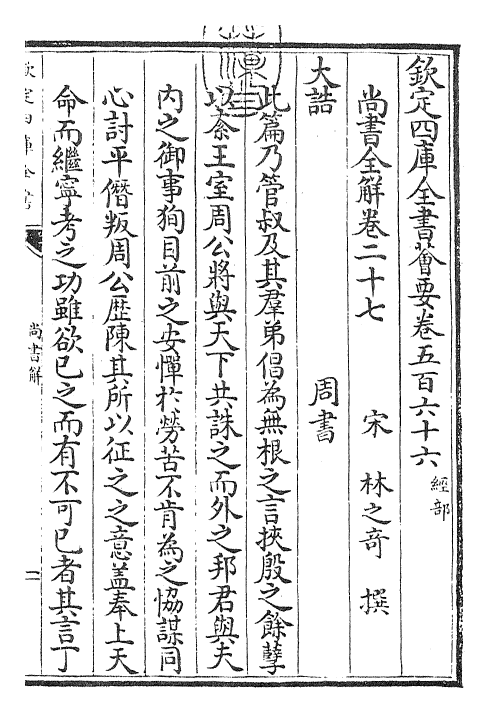 欽定四庫全書薈要卷五百六十六 經部
尚書全解卷二十七 宋 林之奇 撰
大誥 周書
此篇乃管叔及其羣弟倡為無根之言挾殷之餘孽
以紊王室周公將與天下共誅之而外之邦君與夫
内之御事狥目前之安憚扵勞苦不肯為之恊謀同
心討平僭叛周公歴陳其所以征之之意盖奉上天
命而繼寧考之功雖欲已之而有不可已者其言丁
欽定四庫全書
尚書解